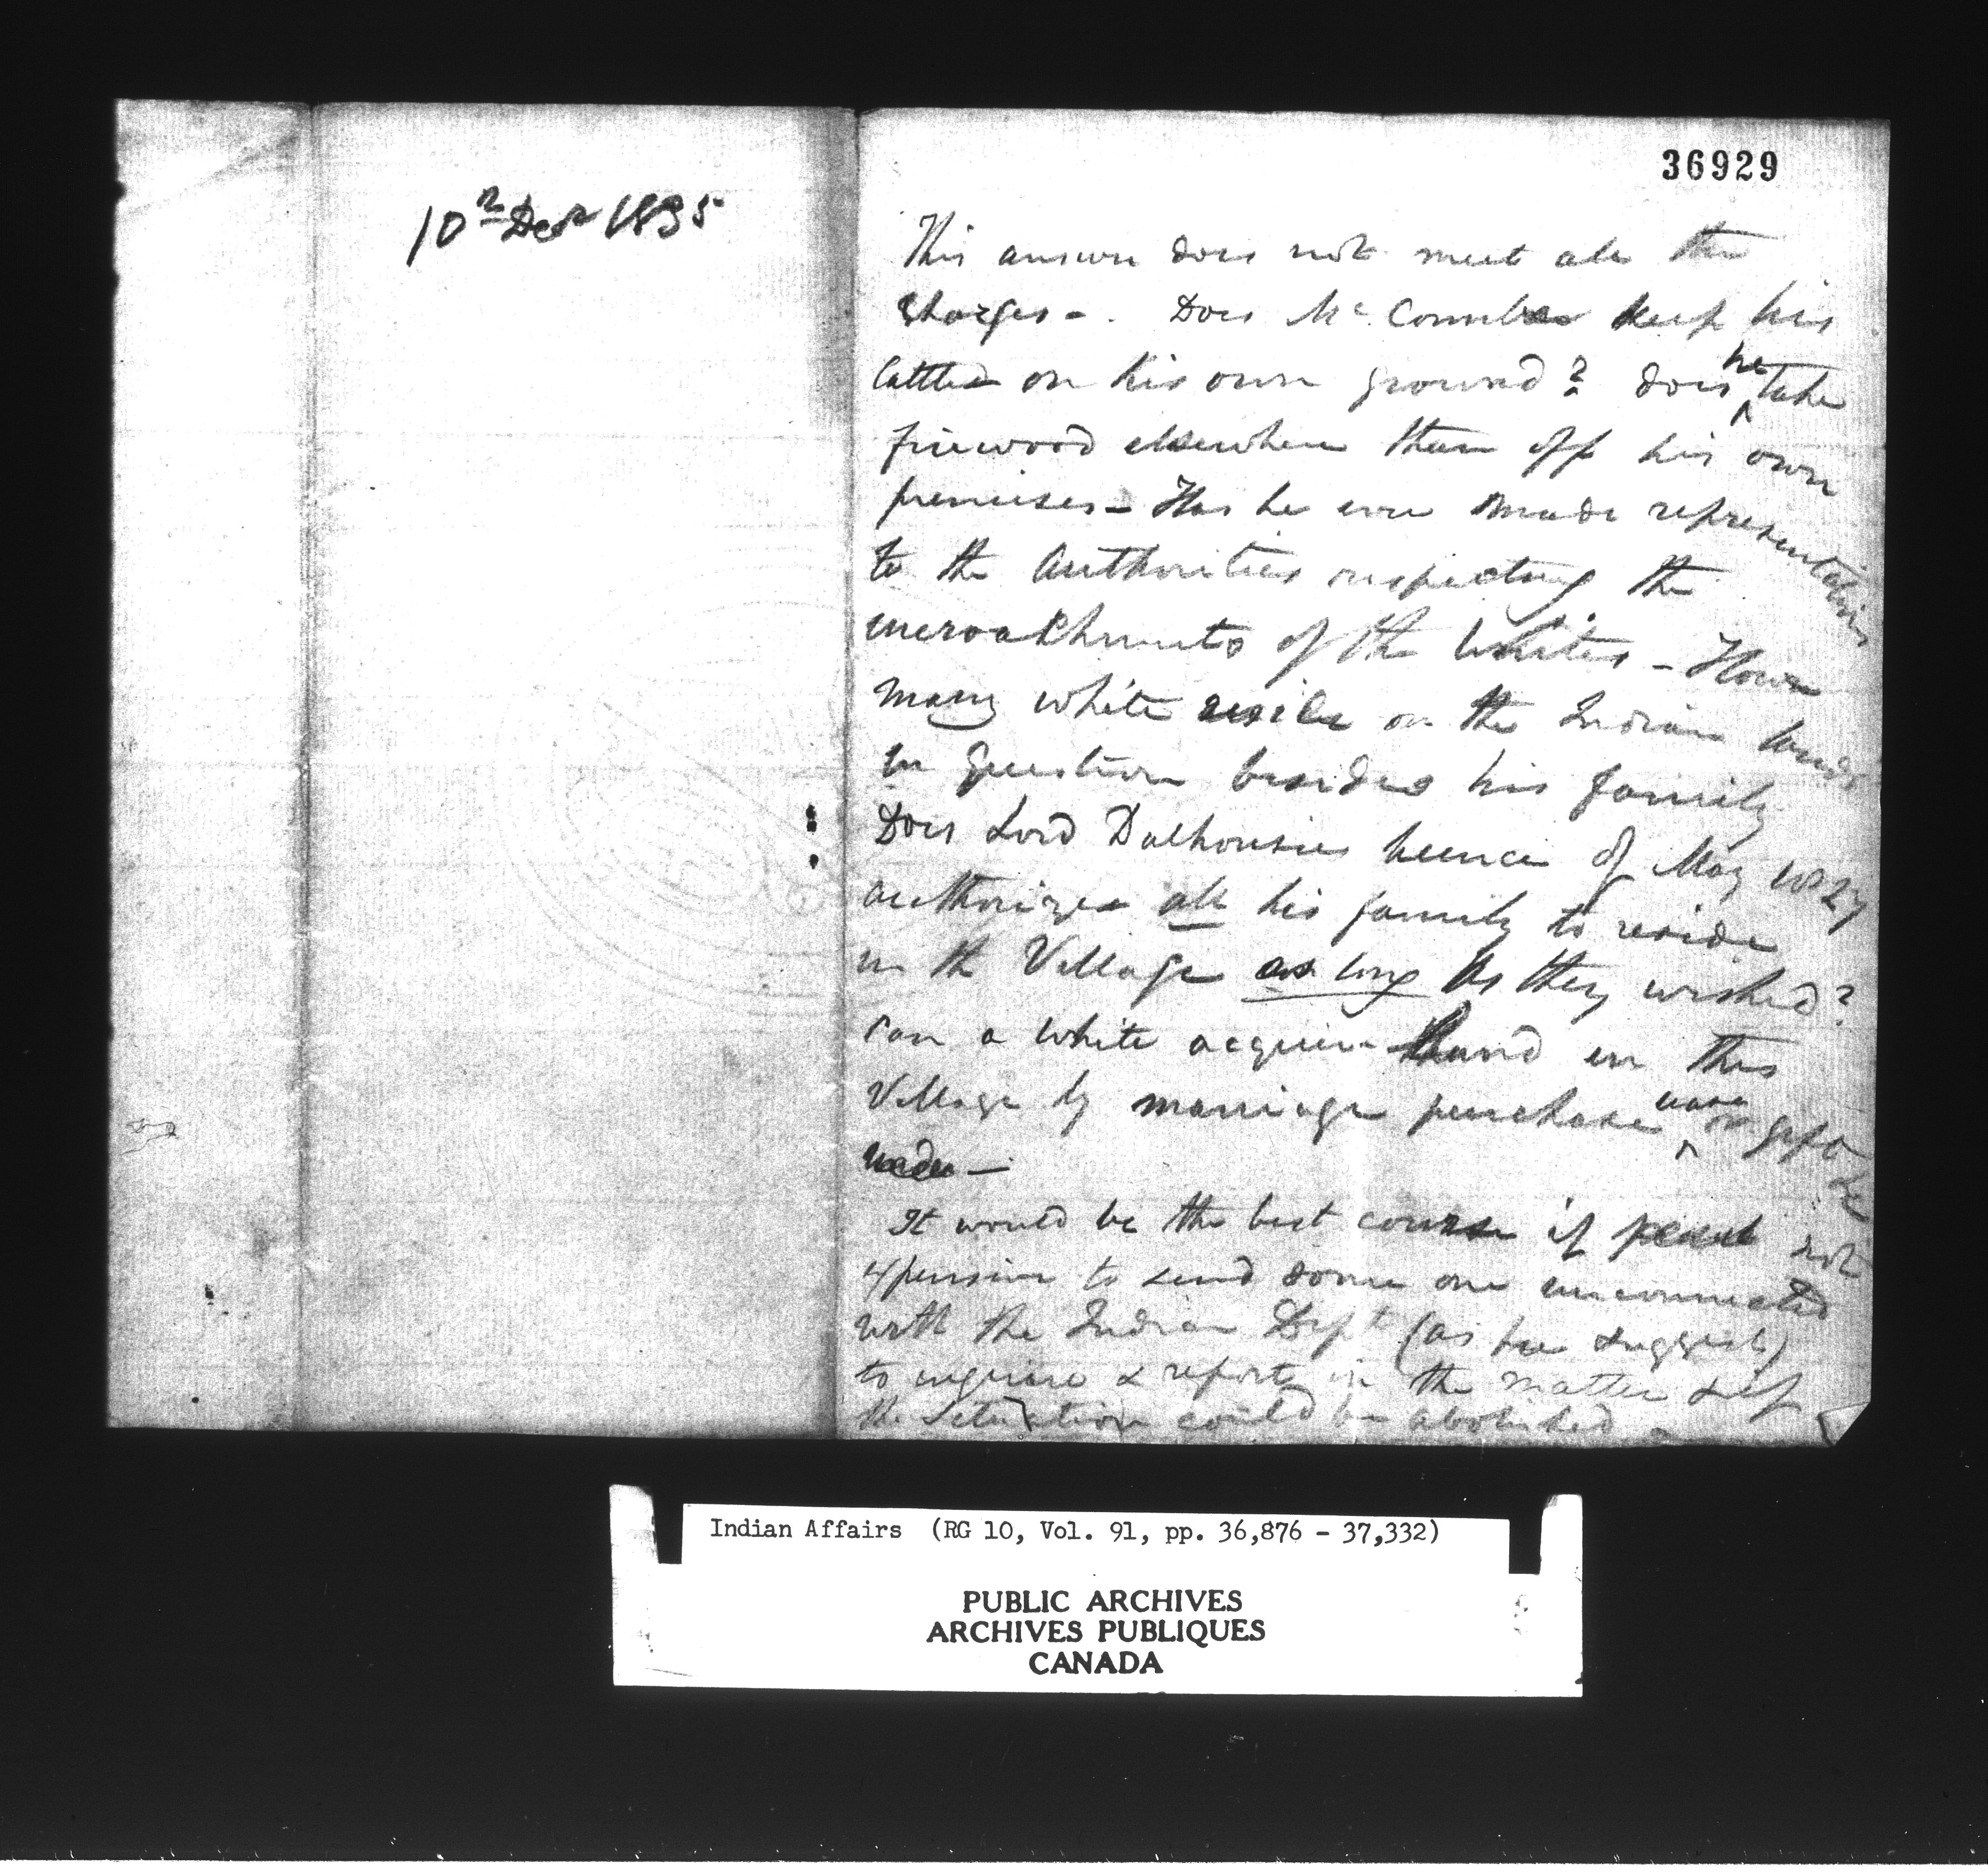 10th Decr 1835
36929
This answer does not meet all the
Charges -. Does Mc Comber keep his
Cattle on his own ground? does he take
firewood elsewhere than off his own
premises - Has he ever made representations
to the Authorities respecting the
encroachments of the Whites - How
many white reside on the Indian lands
in question besides his family
Does Lord Dalhousies licence of May 1827
authorize all his family to reside
in the Village as long as they wished?
Can a white acquire land in this
Village by marriage purchase or gift &c
It would be the best course if not
expensive to send some one unconnected
with the Indian Dept (as he suggests)
to enquire & report in the matter & if
the Situation could be abolished -
Indian Affairs (RG 10, Vol. 91, pp. 36,876 - 37,332)
PUBLIC ARCHIVES
ARCHIVES PUBLIQUES
CANADA